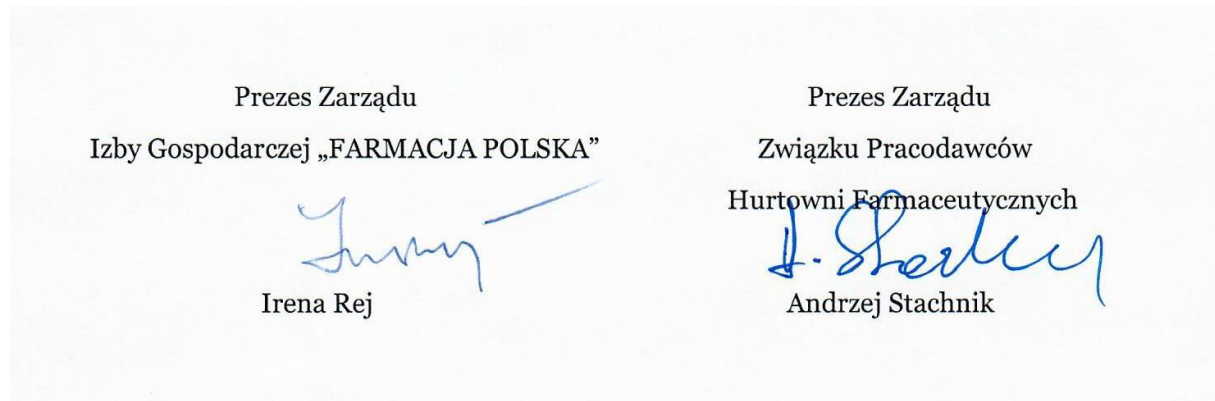 Prezes Zarządu
Izby Gospodarczej „FARMACJA POLSKA”
Irena Rej
Prezes Zarządu
Związku Pracodawców
Hurtowni Farmaceutycznych
A. Stachnik
Andrzej Stachnik